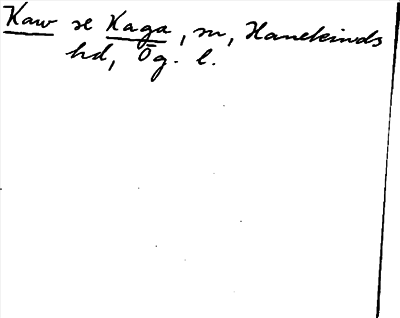 Kaw se Kaga, m, Hanekinds
hd, Ög. l.